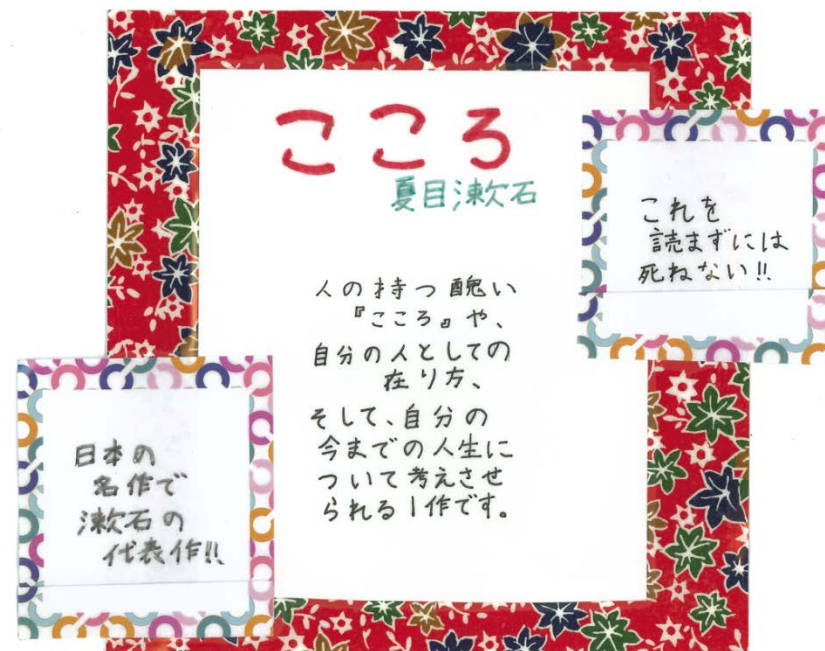 こころ
夏目漱石
人の持つ醜い
『こころ』や、
自分の人としての
在り方、
そして、自分の
今までの人生に
ついて考えさせ
られる1作です。
これを
読まずには
死ねない!!
日本の
名作で
漱石の
代表作!!